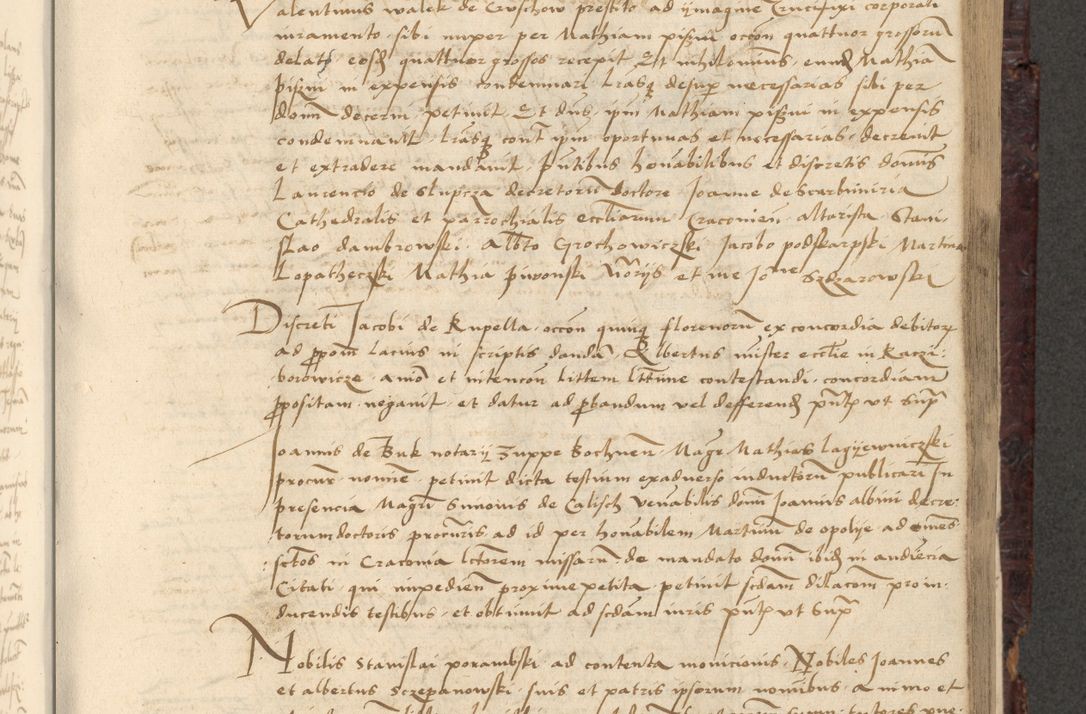 Valentinus walek de Cruschow prestito ad ymagine Crucifixi corporali
iuramento sibi nuper per Mathiam pisni occon quattuor grossoru
delato eosd quattuor grossos recepit Et nihilominus eund Mathia
pisni in expensis condemnari lrasq desup necessarias sibi per
domi decerni petiuit Et dns ipm Mathiam pisni in expensis
condemnauit lrasq cont ipm oportunas et necessarias decreuit
et extradere mandauit Pntibus honabilibus et discretis domis
Laurencio de Slupcza decretoru doctore Joanne de Scarbimiria
Cathedralis et parrochialis eccliarum Cracouien altarista Stani
slao dambrowski Albto Grochowiczski Jacobo podskarpski Martino
Lopatheczki Mathia piwonski Norijs et me Jone Szczarowski
Discreti Jacobi de Rupella occon quinq florenoru ex concordia debitor
ad ppom lacius in scriptis dandã Albertus mister ecclie in Raczi
borowicze animo et intencon littem lttime contestandi concordiam
ppositam negauit et datur ad pbandum vel defferend pntp vt supra
Joannis de Buk notarij zuppe Bochnen Magr Mathias lagyewniczski
procur nomine petiuit dicta testium exaduerso inductoru publicari In
presencia Magri Simonis de Calisch venabilis domi Joannis albini decre
torum doctoris procuris ad id per honabilem Martinu de opolije ad omes
sctos in Cracouia lctorem missaru de mandato domi ibid in audiecia
Citati qui impedien proxime petita petiuit scdam dilacom pro in
ducendis testibus et obtinuit ad scdam iuris pntp vt supra
Nobilis Stanislai porambski ad contenta monicionis Nobiles Joannes
et albertus Sczepanowski suis et patris ipsorum nominibus animo et